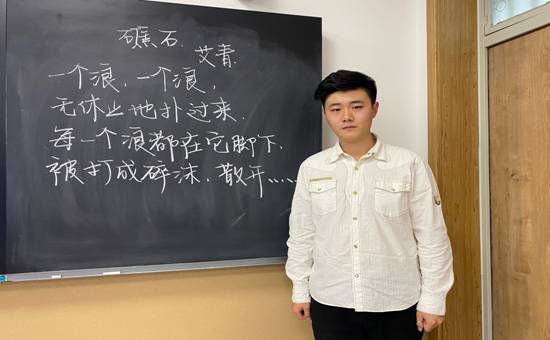 礁石.
艾青.
一个浪,一个浪,
无休止地扑过来.
每一个浪都在它脚下.
被打成碎沫.散开……